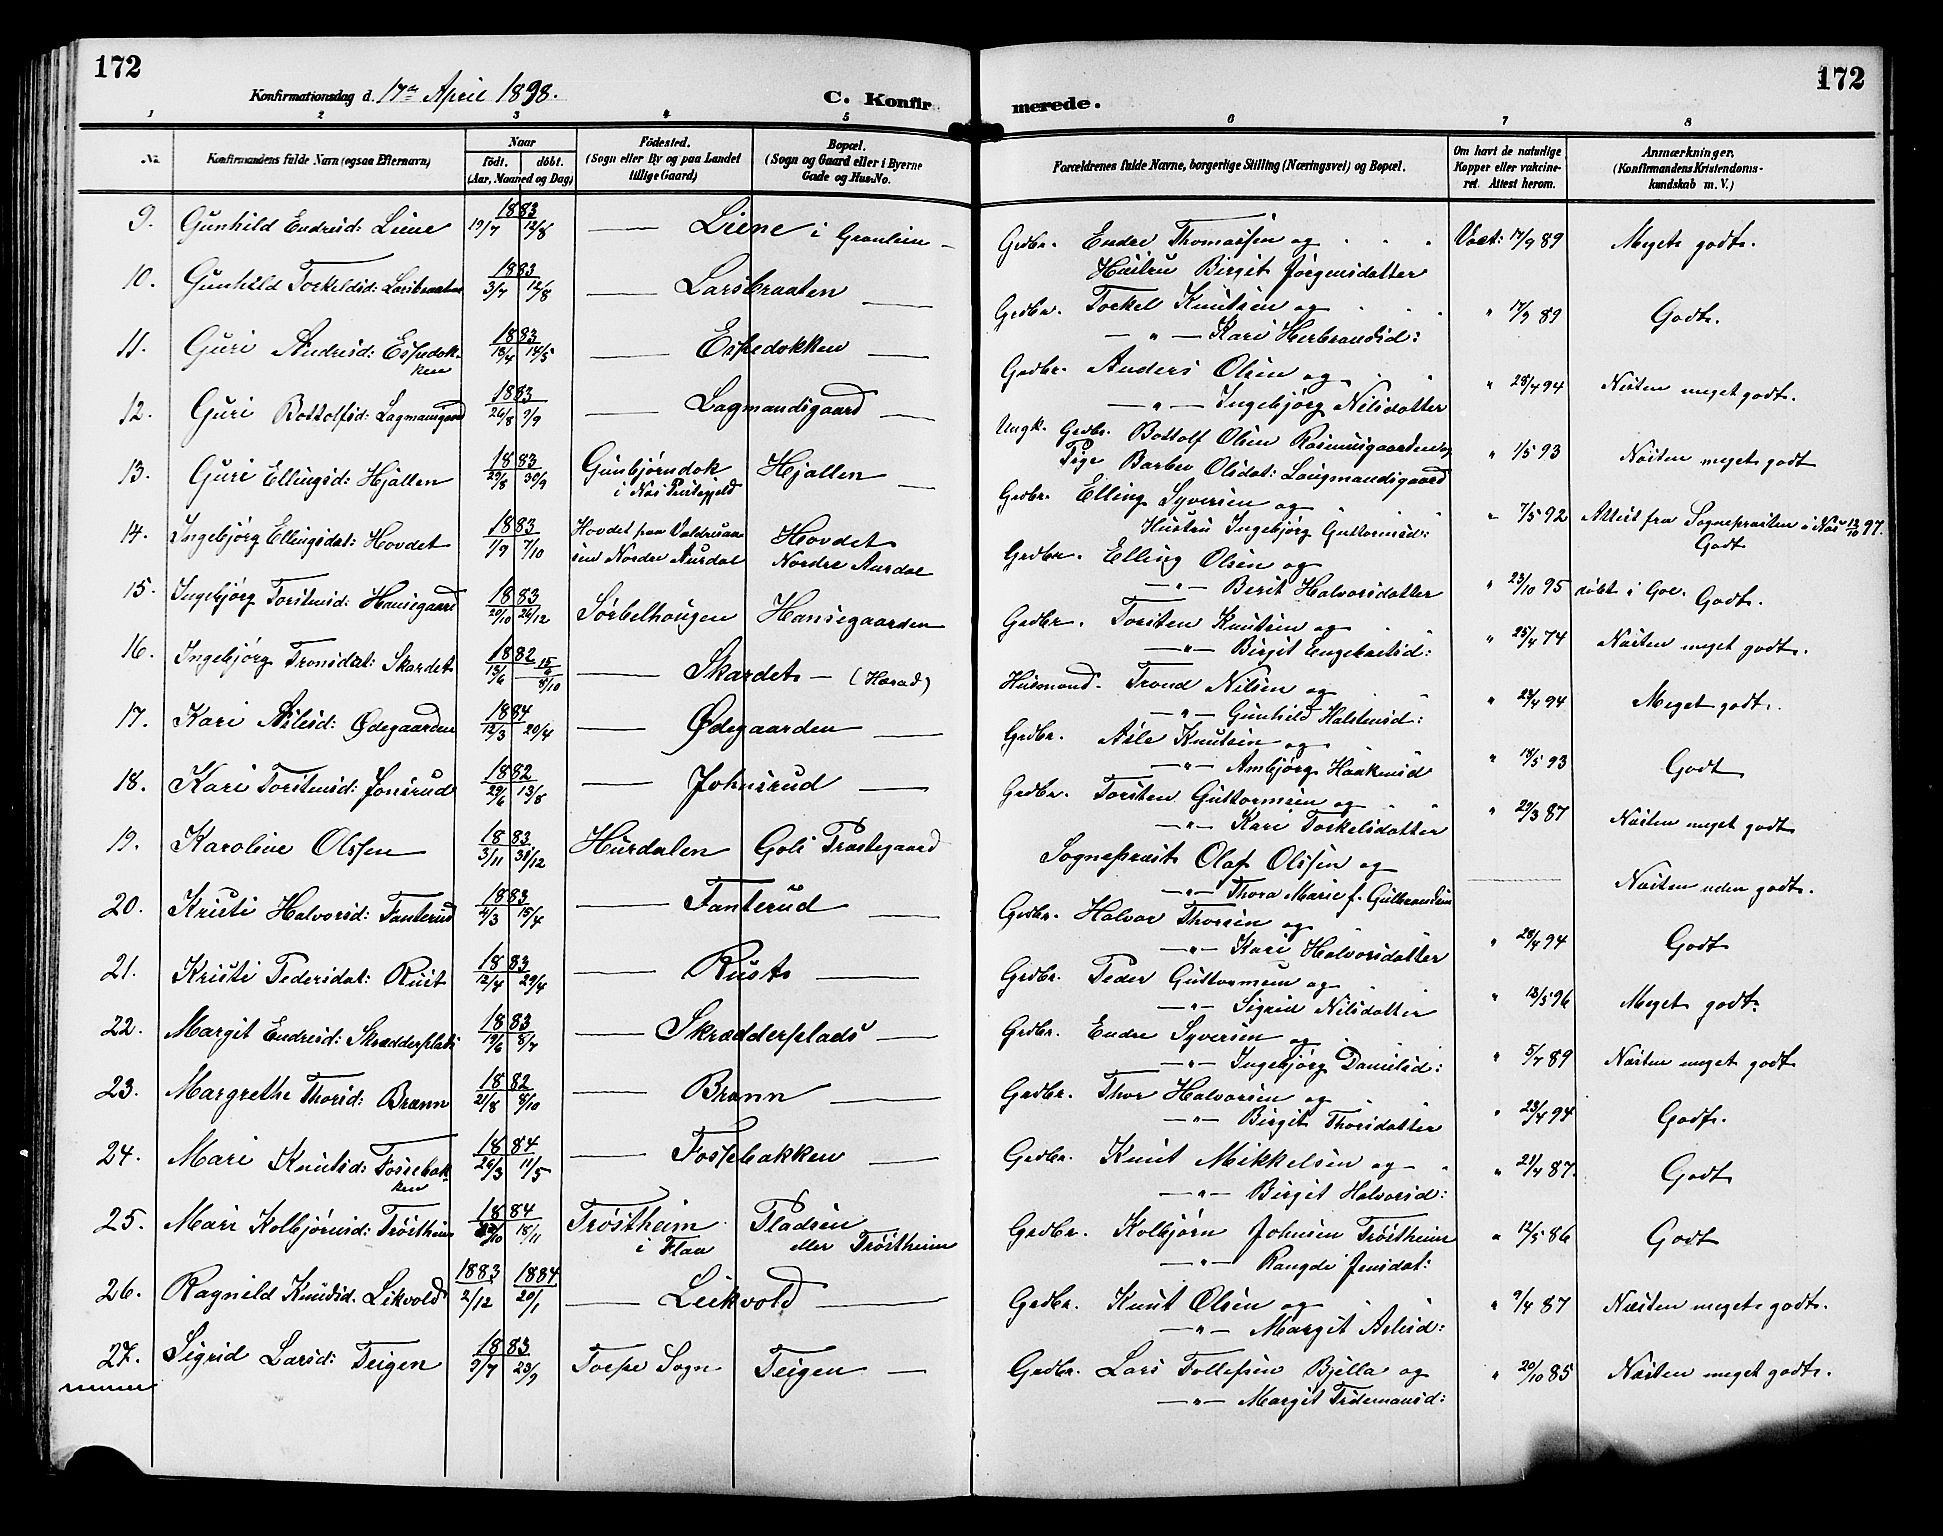 172
172
Konfirmationsdag d. 17de April 1898.
C. Konfirmerede.
1 2 3 4 5 6 7 8
No. Konfirmandens fulde Navn (ogsaa Efternavn)
Naar født. døbt. (Aar, Maaned og Dag)
Fødested. (Sogn eller By og paa Landet tillige Gaard)
Bopæl. (Sogn og Gaard eller i Byerne Gade og Hus-No.
Forældrenes fulde Navne, borgerlige Stilling (Næringsvei) og Bopæl.
Om havt de naturlige Kopper eller vakcineret. Attest herom.
Anmærkninger. (Konfirmandens Kristendomskundskab m. V.)
9. Gunhild Endresd: Liene 1883 19/7 12/8 — Liene i Grønlien — Grdbr. Endre Thomassen og Vacc: 17/9 89 Meget godt.
Hustru Birgit Jørgensdatter
10. Gunhild Torkeldsd: Larsbraaten 1883 3/7 12/8 — Larsbraaten — Grdbr. Torkel Knutsen og " 17/9 89 Godt.
— " — Kari Herbrandsd:
11. Guri Andresd: Espedokken 1883 13/4 14/5 — Espedokken — Grdbr. Anders Olsen og " 28/4 94 Næsten meget godt.
— " — Ingebjørg Nilsdatter
12. Guri Bottolfsd: Lagmansgaard 1883 26/8 9/9 — Lagmandsgaard — Ungk. Grdbr. Bottolf Olsen Rasmusgaarden og " 1/5 93 Næsten meget godt
Pige Barbro Olsdat: Laugmandsgaard
13. Guri Ellingsd: Hjallen 1883 29/8 30/9 Gunbjørndok i Nes Prestegjeld Hjallen — Grdbr. Elling Syversen og " 7/5 92 Attest fra Sognepræsten i Næs 12/10 97. Godt
Hustru Ingebjørg Guttormsd:
14. Ingebjørg Ellingsdat: Hovdet 1883 1/9 7/10 Hovdet paa Valdresaasen Nordre Aurdal Hovdet Nordre Aurdal Grdbr. Elling Olsen og " 23/10 95 døbt i Gol. Godt.
— " — Berit Halvorsdatter
15. Ingebjørg Torstensd: Hansegaard 1883 20/10 26/12 Sørbelhougen Hansegaarden Grdbr. Torsten Knutsen og " 25/4 74 Næsten meget godt.
— " — Birgit Engebretsd:
16. Ingebjørg Tronsdat: Skardet 1882 13/6 15/6 8/10 — Skardet — (Herad) Husmand. Trond Nilsen og " 24/4 94 Meget godt.
— " — Gunhild Halstensd:
17. Kari Aslesd: Ødegaarden 1884 12/3 20/4 — Ødegaarden — Grdbr. Asle Knutsen og " 18/5 93 Godt
— " — Ambjørg Haakensd
18. Kari Torstensd: Jonsrud 1882 29/6 13/8 — Johnsrud — Grdbr. Torsten Guttormsen og " 29/3 87 Næsten meget godt
— " — Kari Torkelsdatter
19. Karoline Olssen 1883 3/11 31/12 Hurdalen Gols Præstegaard Sognepræst Olaf Olssen og — Næsten uden godt.
— " — Thora Marie f. Gulbrandsen
20. Kristi Halvorsd: Fanterud 1883 4/3 15/4 — Fanterud — Grdbr. Halvor Thorsen og " 28/4 94 Godt
— " — Kari Halvorsdatter
21. Kristi Pedersdat: Rust 1883 12/4 29/4 — Rust — Grdbr. Peder Guttormsen og " 13/5 96 Meget godt.
— " — Sigrid Nilsdatter
22. Margit Endresd: Skrædderplads 1883 19/6 8/7 — Skrædderplads — Grdbr. Endre Syversen og " 5/7 89 Næsten meget godt
— " — Ingebjørg Danielsd:
23. Margrethe Thorsd: Brænn 1882 21/8 8/10 — Brænn — Grdbr. Thor Halvorsen og " 23/4 94 Godt.
— " — Birgit Thorsdatter
24. Mari Knutsd: Fossebakken 1884 26/3 11/5 — Fossebakken — Grdbr. Knut Mikkelsen og " 21/4 87. Godt
— " — Birgit Halvorsd:
25. Mari Kolbjørnsd: Trøstheim 1884 /10 18/11 Trøstheim i Flaa Pladsen eller Trøstheim Grdbr. Kolbjørn Johnsen Trøstheim " 12/5 86 Godt
— " — Rangdi Jensdat:
26. Ragnild Knudsd. Leikvold 1883 2/12 1884 20/1 — Leikvold — Grdbr. Knut Olsen og " 9/4 87 Næsten meget godt.
— " — Margit Aslesd:
27. Sigrid Larsd: Teigen 1883 9/7 23/9 Torpe Sogn Teigen — Grdbr. Lars Tollefsen Bjella og " 20/10 85 Næsten meget godt.
— " — Margit Tidemansd: